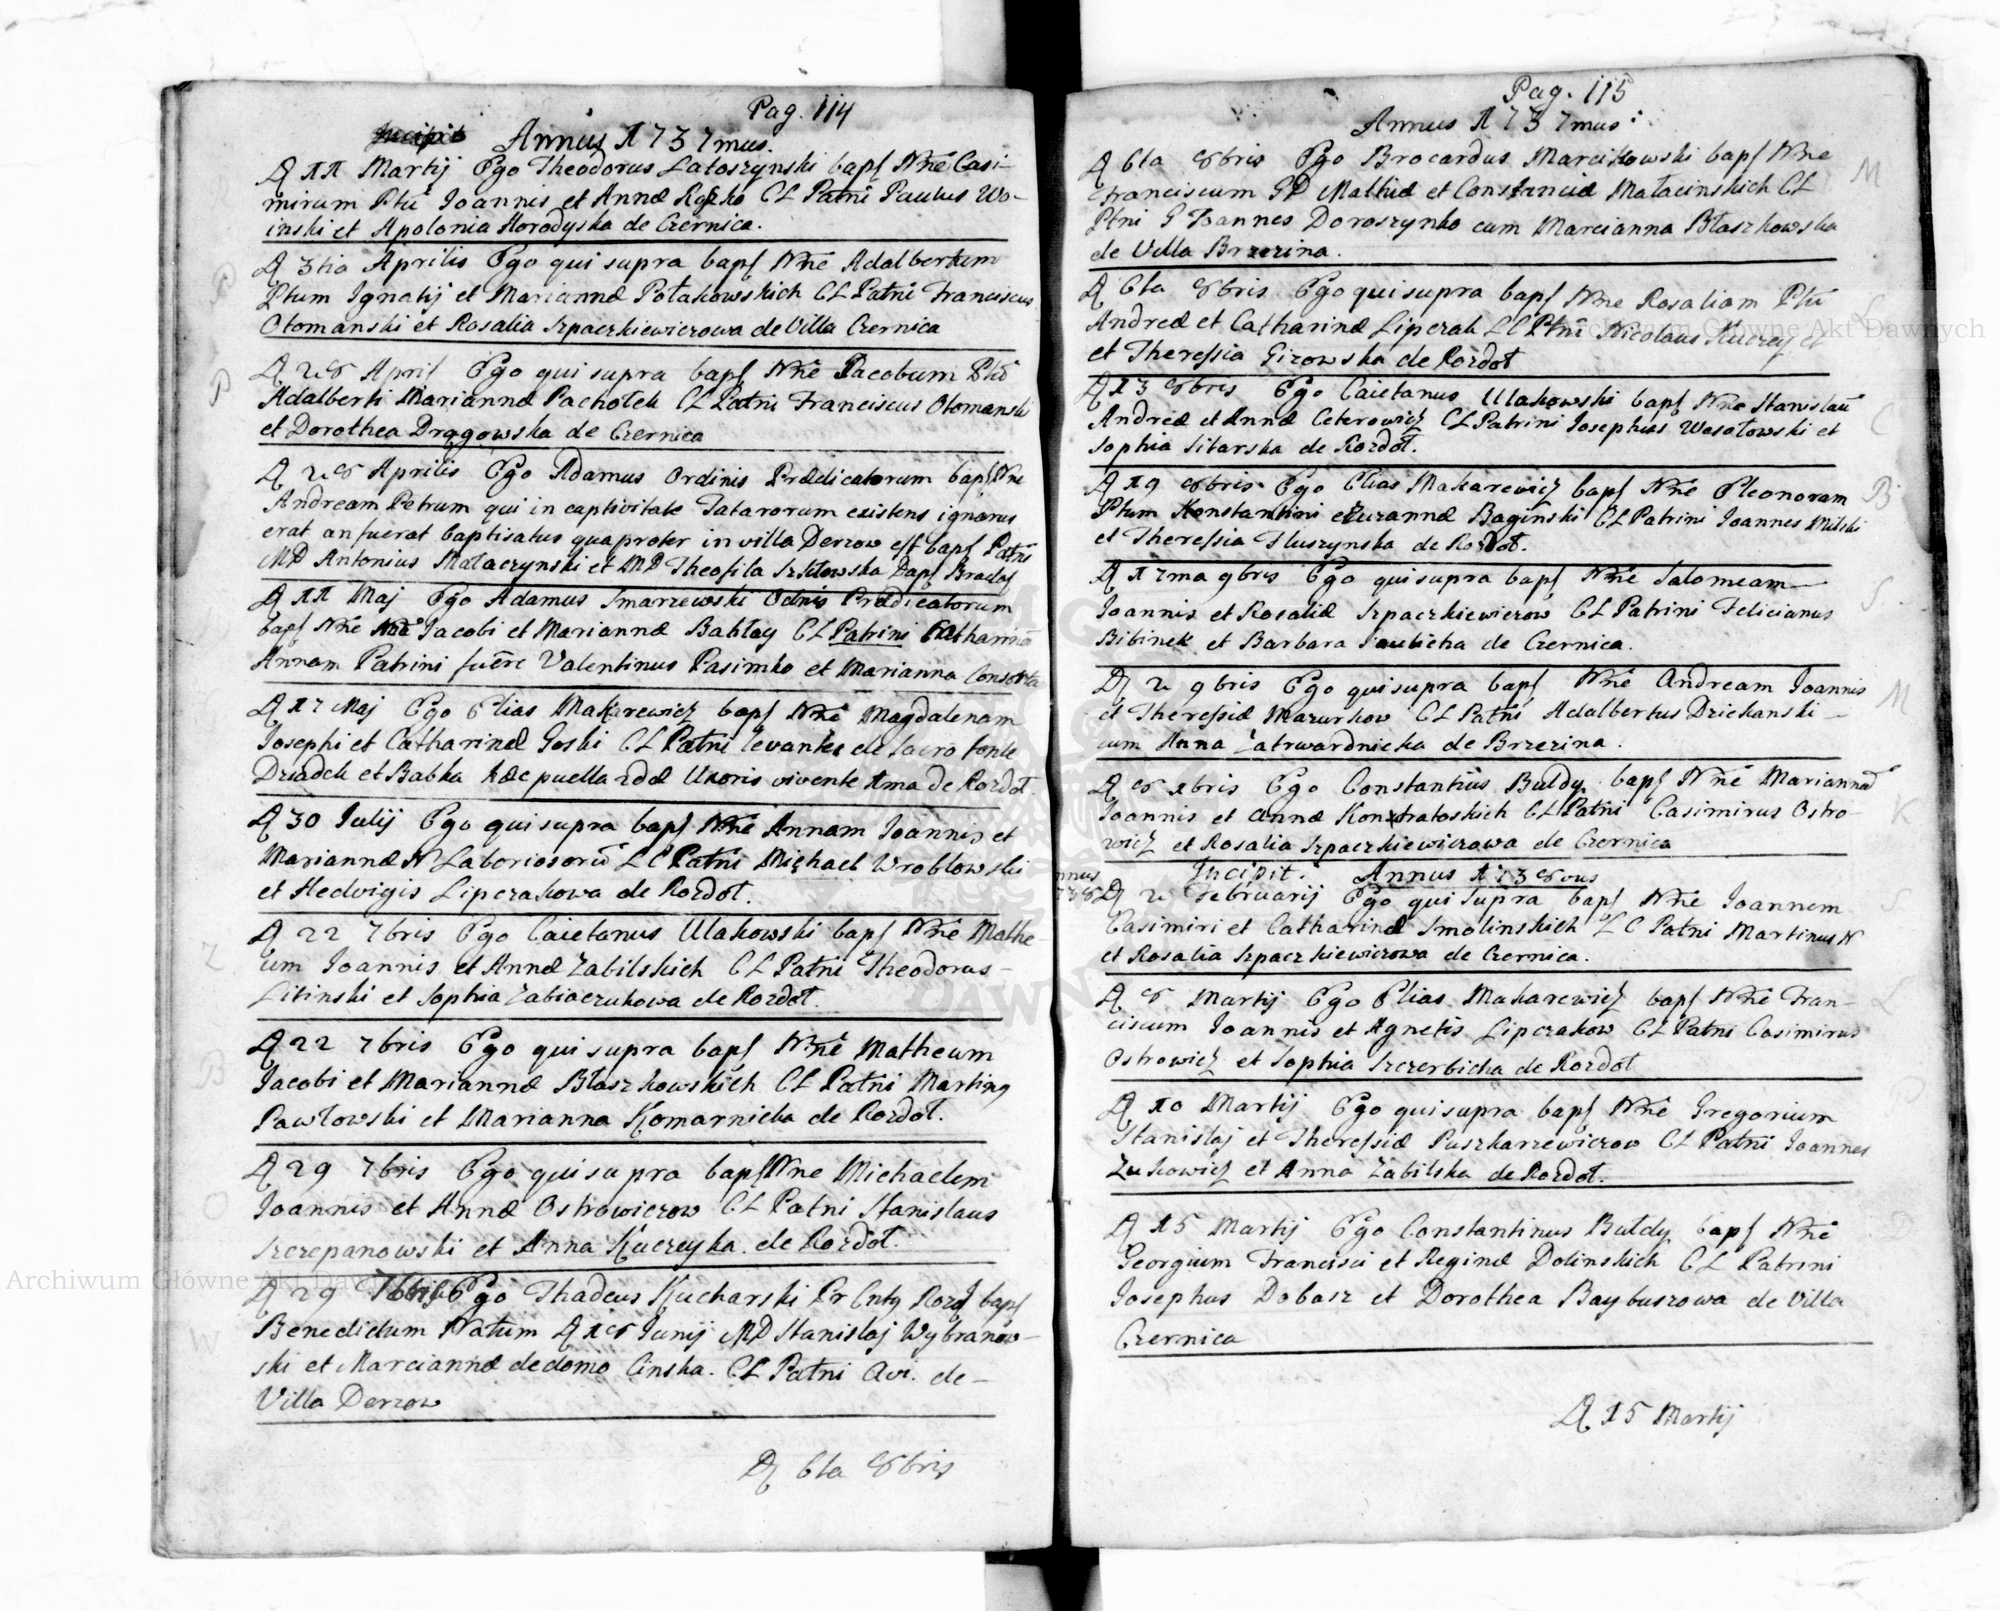 Pag. 114
Annus 1737mus.
D 11 Martij Ego Theodorus Latoszynski bapt Nne Casi-
mirum Ptu Joannis et Annæ CL Patni Paulus Wo-
inski et Apolonia Horodyska de Czernica.
D 3tia Aprilis Ego qui supra bapt Nne Adalbertum
Ptum Ignatij et Mariannæ Potakowskich CL Patni Franciscus
Otomanski et Rosalia Szpaczkiewiczowa de Villa Czernica
D 28 April Ego qui supra bapt Nne Jacobum Ptu
Adalberti Mariannæ Pachołek CL Patni Franciscus Otomanski
et Dorothea Drągowska de Czernica
D 28 Aprilis Ego Adamus Ordinis Prædicatorum bapt Nne
Andream Petrum qui in captivitate Tatarorum existens ignarus
erat an fuerat baptisatus quaproter in villa Derzow est bapt Patni
MD Antonius Małaczynski et MD Theofila
D 11 Maj Ego Adamus Smarzewski Odnis Prædicatorum
bapt Nne Jacobi et Mariannæ Bahłay CL Patrini Catharina
Annam Patrini fuere Valentinus Pasimko et Marianna Consorta
D 17 Maj Ego Elias Makarewicz bapt Nne Magdalenam
Josephi et Catharinæ Goski CL Patni levantes de sacro fonte
Dziadek et Babka hæc puella 2dæ Uxoris vivente 1ma de Rozdoł.
D 30 Julij Ego qui supra bapt Nne Annam Joannis et
Mariannæ N Laboriosoru LC Patni Michael Wroblowski
et Hedvigis Lipczakowa de Rozdoł.
D 22 7bris Ego Caietanus Ulakowski bapt Nne Mathe-
um Joannis et Annæ Zabilskich CL Patni Theodorus
Litinski et Sophia Zabiaczukowa de Rozdoł.
D 22 7bris Ego qui supra bapt Nne Matheum
Jacobi et Mariannæ Błaszkowskich CL Patni Martinq
Pawłowski et Marianna Komarnicka de Rozdoł.
D 29 7bris Ego qui supra bapt Nne Michaelem
Joannis et Annæ Ostrowiczow CL Patni Stanislaus
Szczepanowski et Anna Kuczeyka de Rozdoł.
D 29 7bris Ego Thadeus Kucharski bapt
Benedictum Natum D 18 Junij MD Stanislaj Wybranow-
ski et Marciannæ de domo Cinska. CL Patni Avi. de
Villa Derzow
D 6ta 8bris
Pag. 115
Annus 1737mus:
D 6ta 8bris Ego Brocardus Marcikowski bapt Nne
Franciscum GD Mathiæ et Constanciæ Małacinskich CL
Ptni G Joannes Doroszynko cum Marcianna Błaszkowska
de Villa Brzezina.
D 6ta 8bris Ego qui supra bapt Nne Rosaliam Ptu
Andreæ et Catharinæ Lipczak LC Ptni Nicolaus Kuczey et
et Theressia Gizowska de Rozdoł
D 13 8bris Ego Caietanus Ulakowski bapt Nne Stanislau
Andreæ et Annæ Ceterowicz CL Patrini Josephus Wesołowski et
Sophia Sitarska de Rozdoł.
D 19 8bris Ego Elias Makarewicz bapt Nne Eleonoram
Ptum Konstantini et Zuzannæ Baginski CL Patrini Joannes Milski
et Theressia Tluszynska de Rozdoł.
D 17ma 9bris Ego qui supra bapt Nne Salomeam
Joannis et Rosaliæ Szpaczkiewiczow CL Patrini Felicianus
Bibinek et Barbara Saulicha de Czernica.
D 2 9bris Ego qui supra bapt Nne Andream Joannis
et Theressiæ Mazurkow CL Patni Adalbertus Dziekanski
cum Anna Zatwardnicka de Brzezina.
D 8 xbris Ego Constantius Buldy bapt Nne Mariannã
Joannis et Annæ Kondratoskich CL Patni Casimirus Ostro-
wicz et Rosalia Szpaczkiewiczowa de Czernica
Incipit. Annus 1738vus
D 2 Februarij Ego qui supra bapt Nne Joannem
Casimiri et Catharinæ Smolinskich LC Patni Martinus N
et Rosalia Szpaczkiewiczowa de Czernica.
D 8 Martij Ego Elias Makarewicz bapt Nne Fran-
ciscum Joannis et Agnetis Lipczakow CL Patni Casimirus
Ostrowicz et Sophia Szczerbicka de Rozdoł
D 10 Martij Ego qui supra bapt Nne Gregorium
Stanislaj et Theressiæ Puszkarzewiczow CL Patni Joannes
Zukowicz et Anna Zabilska de Rozdoł.
D 15 Martij Ego Constantinus Bułdy bapt Nne
Georgium Francisci et Reginæ Dolinskich CL Patrini
Josephus Dobosz et Dorothea Baybuszowa de Villa
Czernica
D 15 Martij
Archiwum Główne Akt Dawnych
Archiwum Główne Akt Dawnych